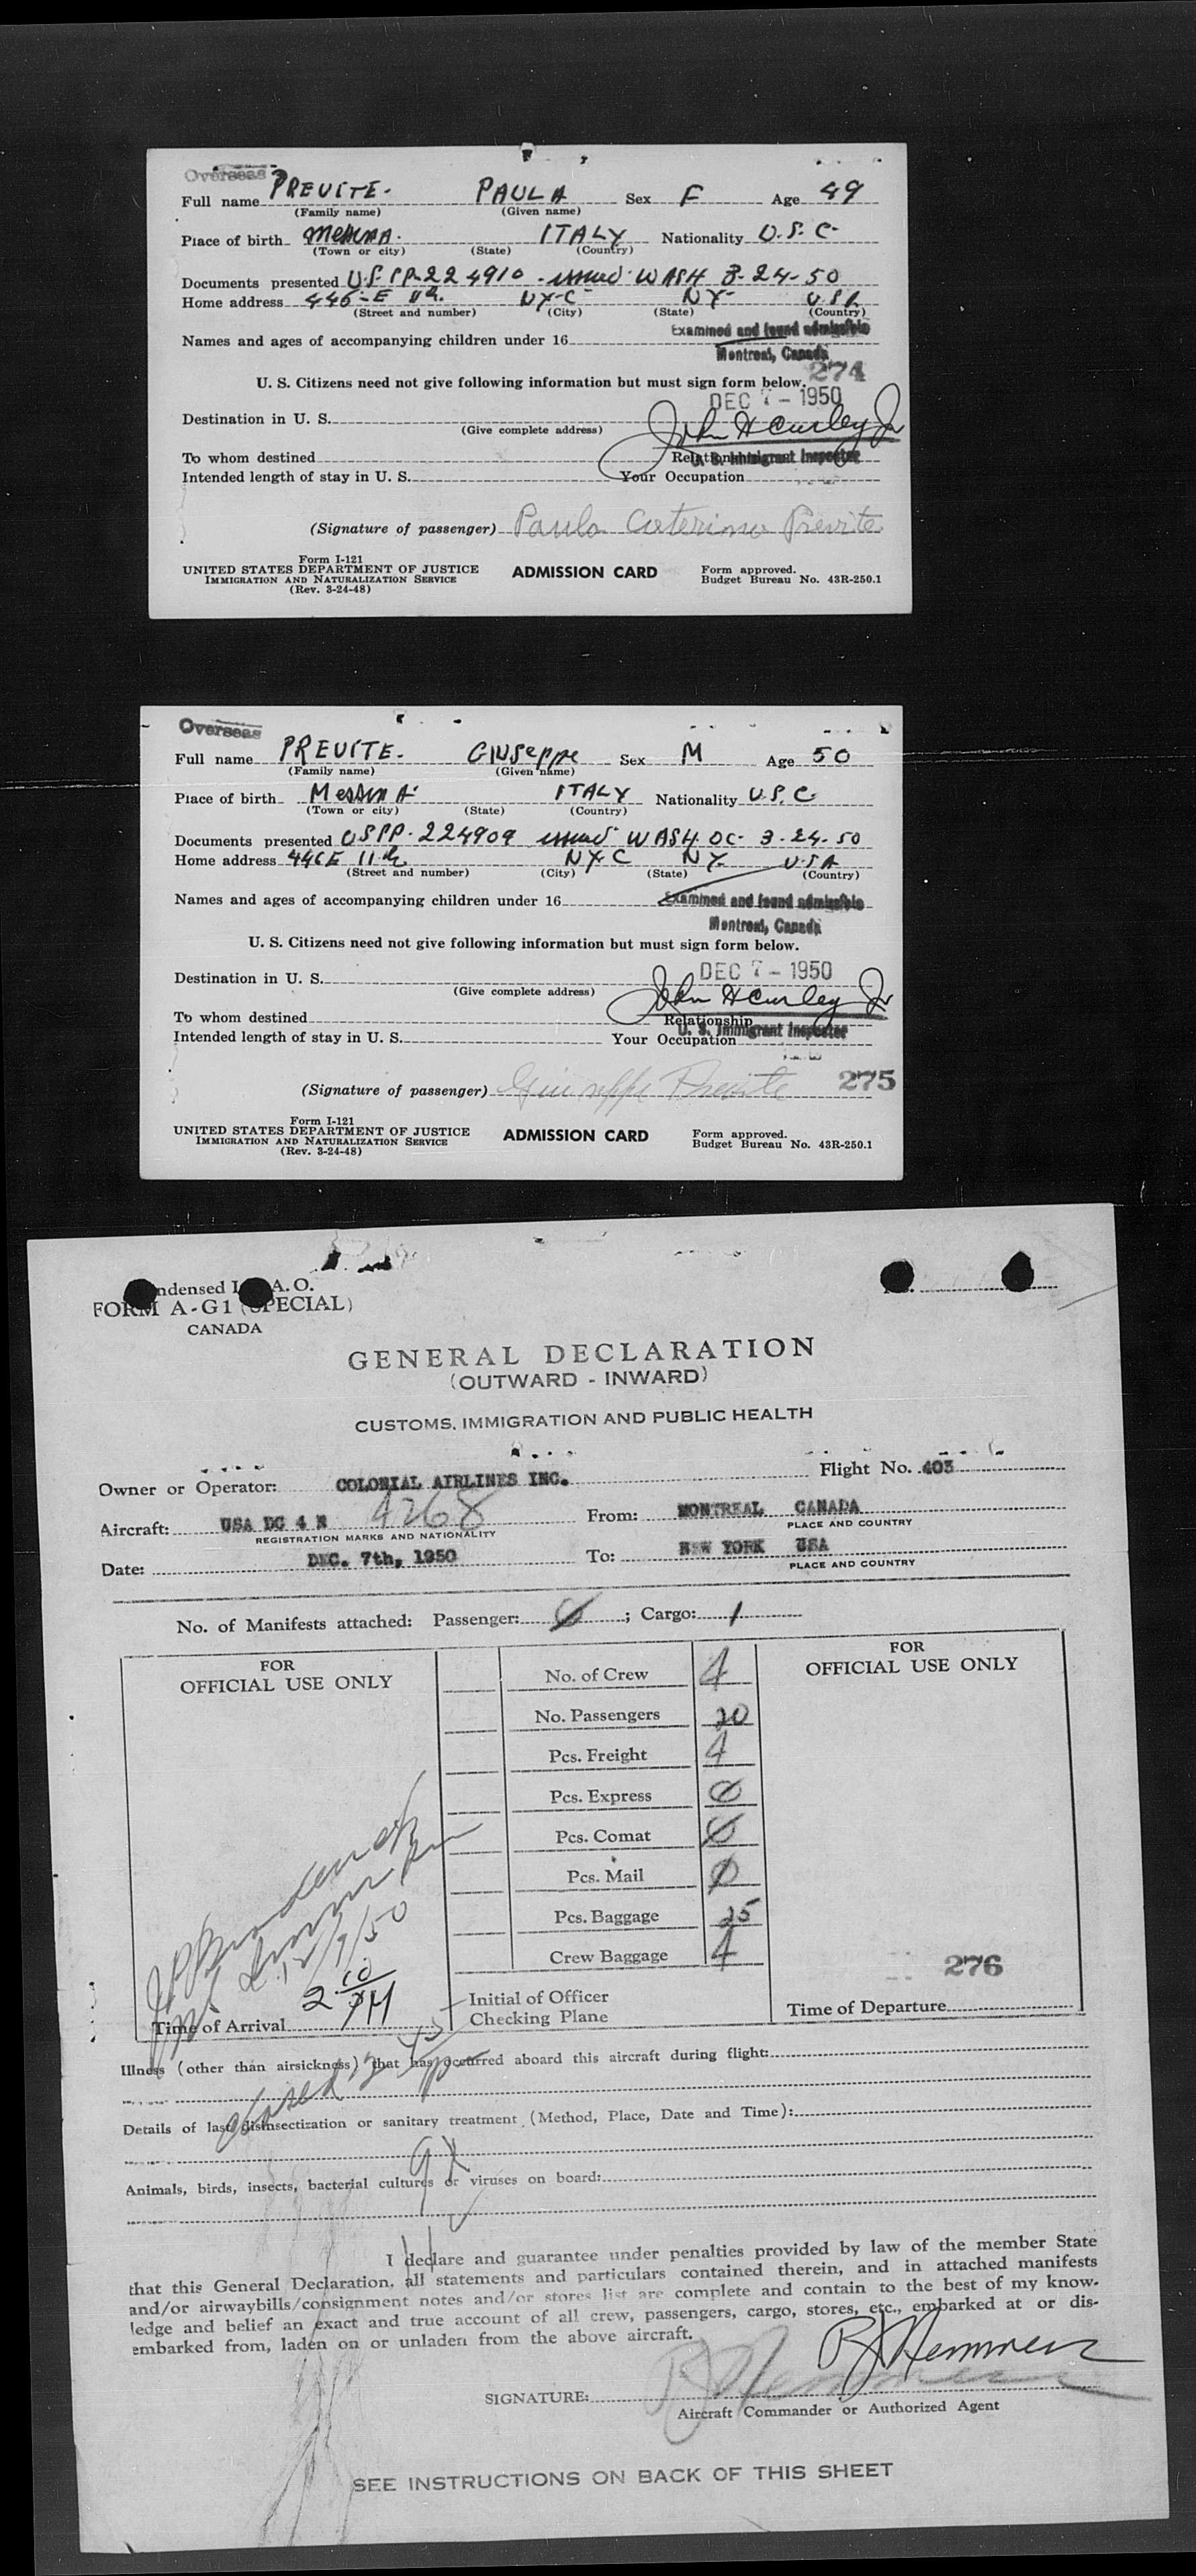 Overseas
Full name PREVITE. PAULA Sex F Age 49
(Family name) (Given name)
Place of birth Messina. ITALY Nationality U.S.C.
(Town or city) (State) (Country)
Documents presented U.S. PP-224910 - issued WASH 3-24-50
Home address 446-E 11th. NYC NY- USA
(Street and number) (City) (State) (Country)
Examined and found admissible
Names and ages of accompanying children under 16
Montreal, Canada
274
U. S. Citizens need not give following information but must sign form below.
DEC 7 - 1950
Destination in U. S. John H Curley Jr
(Give complete address)
To whom destined Relationship
U. S. Immigrant Inspector
Intended length of stay in U. S. Your Occupation
(Signature of passenger) Paula Caterina Previte
Form I-121
UNITED STATES DEPARTMENT OF JUSTICE
IMMIGRATION AND NATURALIZATION SERVICE
(Rev. 3-24-48)
ADMISSION CARD
Form approved.
Budget Bureau No. 43R-250.1
Overseas
Full name PREVITE. GIUSeppe Sex M Age 50
(Family name) (Given name)
Place of birth MessinA ITALY Nationality U.S.C.
(Town or city) (State) (Country)
Documents presented USPP-224909 issued WASH DC- 3-24-50
Home address 446E 11th NYC NY- USA
(Street and number) (City) (State) (Country)
Names and ages of accompanying children under 16 Examined and found admissible
Montreal, Canada
U. S. Citizens need not give following information but must sign form below.
DEC 7 - 1950
Destination in U. S.
(Give complete address) John H Curley Jr
To whom destined Relationship
U. S. Immigrant Inspector
Intended length of stay in U. S. Your Occupation
(Signature of passenger) Giuseppe Previte 275
Form I-121
UNITED STATES DEPARTMENT OF JUSTICE
IMMIGRATION AND NATURALIZATION SERVICE
(Rev. 3-24-48)
ADMISSION CARD
Form approved.
Budget Bureau No. 43R-250.1
A.O.
FORM A-G1 (SPECIAL)
CANADA
GENERAL DECLARATION
(OUTWARD - INWARD)
CUSTOMS, IMMIGRATION AND PUBLIC HEALTH
Owner or Operator: COLONIAL AIRLINES INC. Flight No. 403
Aircraft: USA DC 4 N 4268 From: MONTREAL CANADA
REGISTRATION MARKS AND NATIONALITY PLACE AND COUNTRY
Date: DEC. 7th, 1950 To: NEW YORK USA
PLACE AND COUNTRY
No. of Manifests attached: Passenger: 0; Cargo: 1
FOR
OFFICIAL USE ONLY
No. of Crew 4
No. Passengers 20
Pcs. Freight 4
Pcs. Express 0
Pcs. Comat 0
Pcs. Mail 0
Pcs. Baggage 25
Crew Baggage 4
FOR
OFFICIAL USE ONLY
12/7/50
276
Time of Arrival 2 10 PM
Initial of Officer
Checking Plane
Time of Departure
Illness (other than airsickness) that has occurred aboard this aircraft during flight:
Details of last disinsectization or sanitary treatment (Method, Place, Date and Time):
Animals, birds, insects, bacterial cultures or viruses on board:
I declare and guarantee under penalties provided by law of the member State
that this General Declaration, all statements and particulars contained therein, and in attached manifests
and/or airwaybills/consignment notes and/or stores list are complete and contain to the best of my know-
ledge and belief an exact and true account of all crew, passengers, cargo, stores, etc., embarked at or dis-
embarked from, laden on or unladen from the above aircraft.
SIGNATURE:
Aircraft Commander or Authorized Agent
SEE INSTRUCTIONS ON BACK OF THIS SHEET